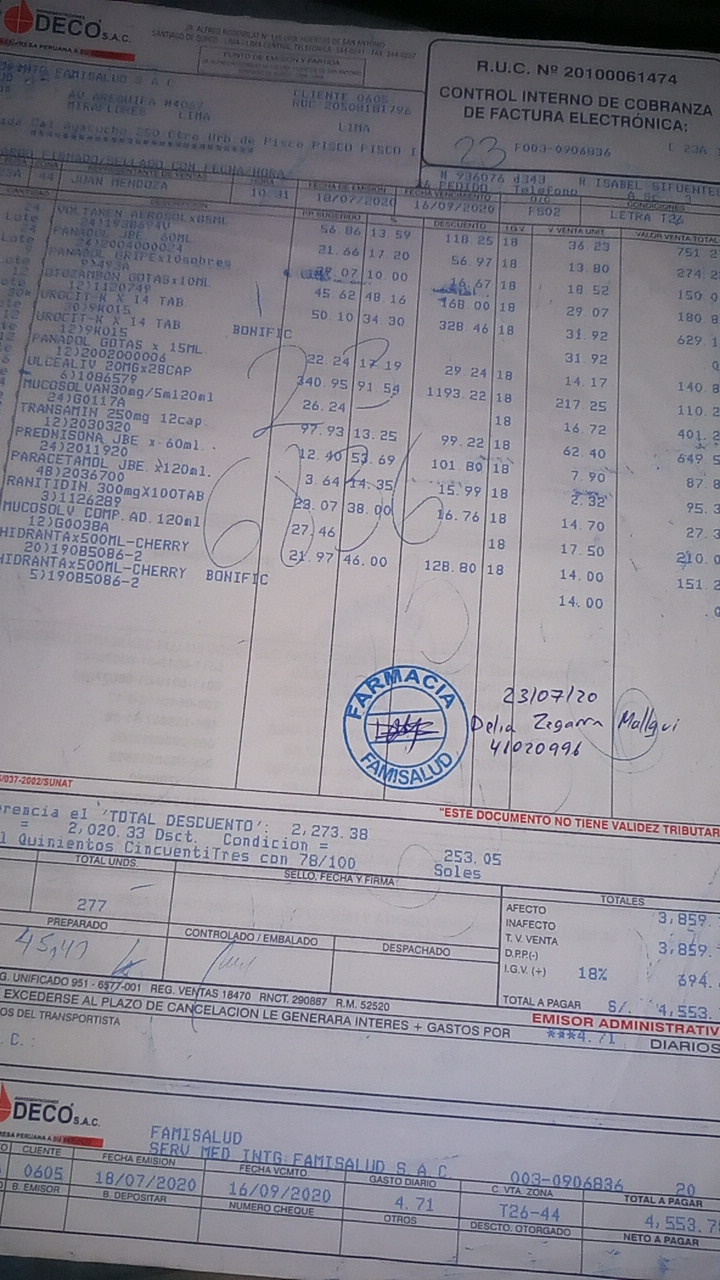 DECO S.A.C.
PUNTO DE EMISIÓN Y PARTIDA
R.U.C. Nº 20100061474
CONTROL INTERNO DE COBRANZA
DE FACTURA ELECTRÓNICA:
23 F003-0906836
FAMISALUD S A C
CLIENTE 0605
AV AREQUIPA
RUC 20508181796
MIRAFLORES LIMA
LIMA
Ayacucho 250 Ctro Urb de Pisco PISCO PISCO I
N 936076 d343 R ISABEL SIFUENTE
PEDIDO Telefono
ZONA REPRESENTANTE DE VENTAS HORA FECHA DE EMISIÓN FECHA VENCIMIENTO O/C CONDICIONES
44 JUAN MENDOZA 10 31 18/07/2020 16/09/2020 FS02 LETRA T26
CANTIDAD DESCRIPCION PP SUGERIDO % DESCUENTO I.G.V V VENTA UNIT. VALOR VENTA TOTAL
VOLTAREN AEROSOLx85ML 56.86 13.59 118 25 18 36.23 751 2
24)193B694V
PANADOL JBE. 60ML 21.66 17.20 56.97 18 13.80 274 2
24)2004000024
PANADOL GRIPEx10sobres 07 10.00 16.67 18 18 52 150 0
8)493A
GOTASx10ML 45 62 48.16 168 00 18 29.07 180 8
12)1120749
UROCIT-K X 14 TAB 50 10 34.30 328 46 18 31.92 629 1
30)9K015
UROCIT-K X 14 TAB BONIFIC 31.92
12)9K015
PANADOL GOTAS x 15ML. 22.24 17 19 29.24 18 14.17 140 8
12)2002000006
ULCEALIV 20MGx28CAP 340.95 91 54 1193.22 18 217.25 110 2
6)1086579
MUCOSOLVAN30mg/5m120ml 26.24 18 16.72 401 2
24)G0117A
TRANSAMIN 250mg 12cap. 97.93 13.25 99.22 18 62.40 649 5
12)2030320
PREDNISONA JBE x 60ml. 12.40 53.69 101.80 18 7.90 87.8
24)2011920
PARACETAMOL JBE. x120ml. 3.64 14.35 15.99 18 2.32 95.3
48)2036700
RANITIDIN 300mgX100TAB 23.07 38.00 16.76 18 14.70 27.3
3)1126289
MUCOSOLV COMP.AD.120ml 27.46 18 17.50 210.0
12)G0038A
HIDRANTAx500ML-CHERRY 21.97 46.00 128.80 18 14.00 151.2
20)19085086-2
HIDRANTAx500ML-CHERRY BONIFIC 14.00
5)19085086-2
FARMACIA
FAMISALUD
23/07/20
Delia Zegarra Mallqui
41020996
/037-2002/SUNAT
"ESTE DOCUMENTO NO TIENE VALIDEZ TRIBUTAR
erencia el 'TOTAL DESCUENTO': 2,273.38
= 2,020.33 Dsct. Condicion = 253.05
l Quinientos CincuentiTres con 78/100 Soles
TOTAL UNDS. SELLO, FECHA Y FIRMA TOTALES
277
AFECTO 3,859.
INAFECTO
T. V. VENTA 3,859.
D.P.P(-)
I.G.V. (+) 18% 694.
TOTAL A PAGAR S/. 4,553.
PREPARADO CONTROLADO / EMBALADO DESPACHADO
G. UNIFICADO 951 - 6577-001 REG. VENTAS 18470 RNCT. 290887 R.M. 52520
EMISOR ADMINISTRATIV
EXCEDERSE AL PLAZO DE CANCELACION LE GENERARA INTERES + GASTOS POR ***4.71 DIARIOS
OS DEL TRANSPORTISTA
.C.:
DECO S.A.C.
FAMISALUD
SERV MED INTG FAMISALUD S A C 003-0906836 20
CLIENTE FECHA EMISION FECHA VCMTO GASTO DIARIO C. VTA. ZONA TOTAL A PAGAR
0605 18/07/2020 16/09/2020 4.71 T26-44 4,553.7
B. EMISOR B. DEPOSITAR NUMERO CHEQUE OTROS DESCTO. OTORGADO NETO A PAGAR